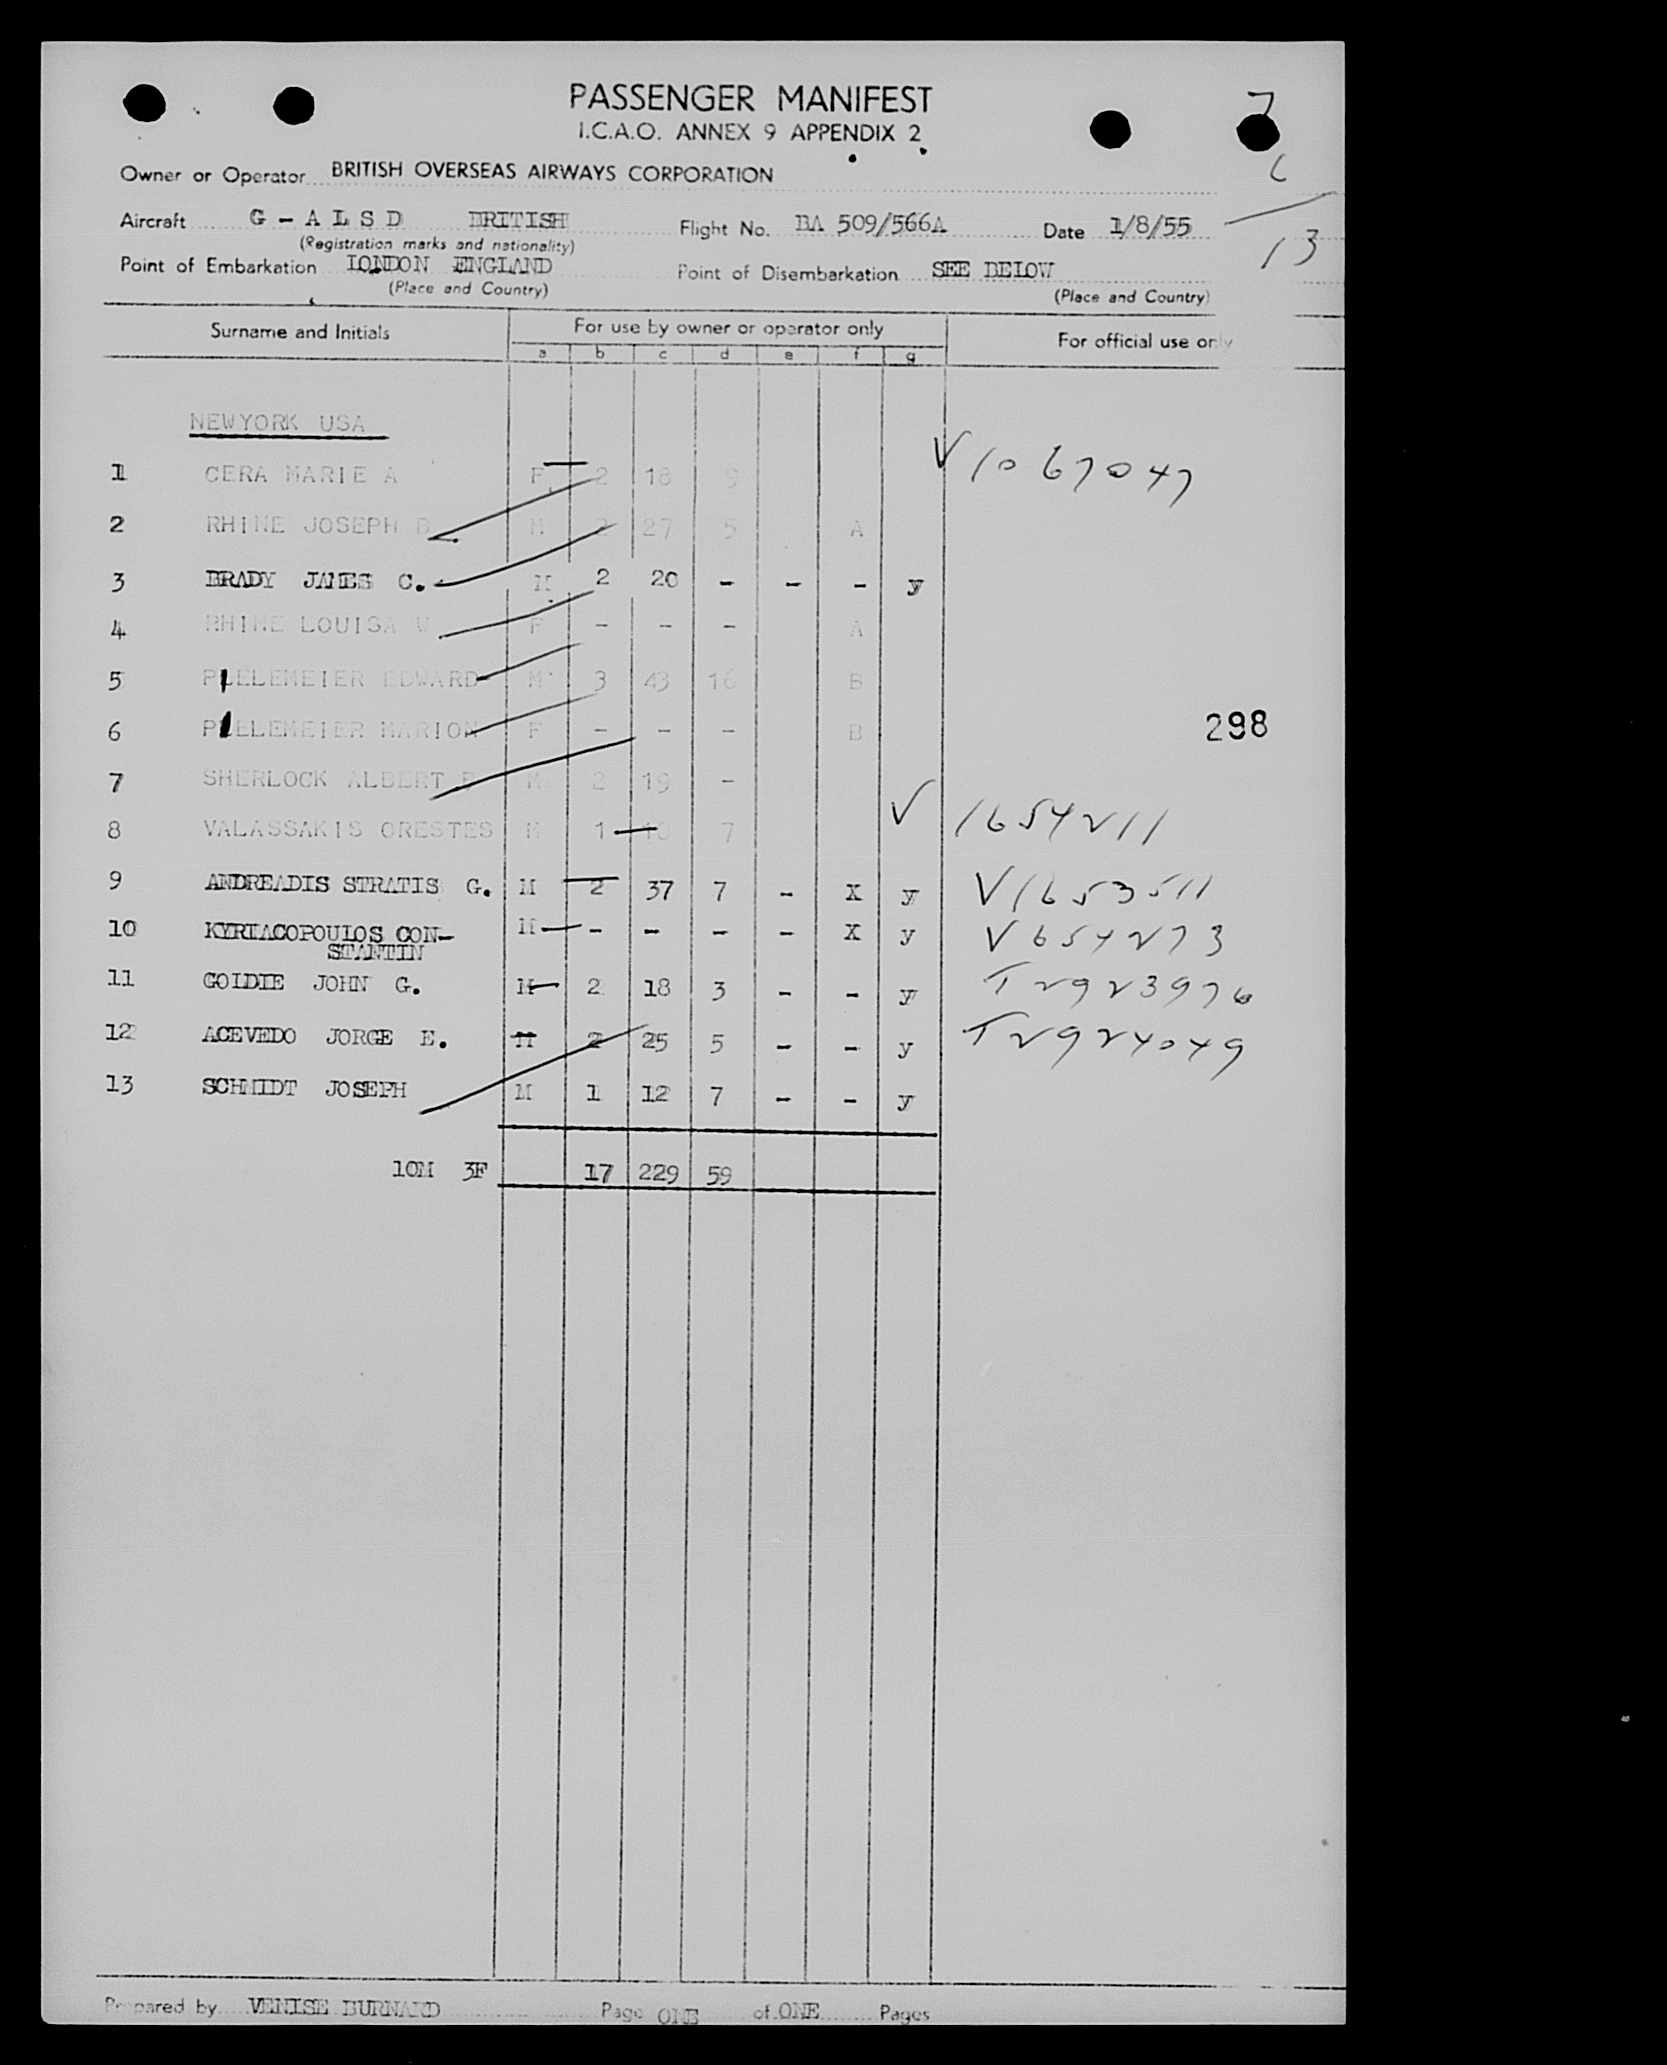 PASSENGER MANIFEST
I.C.A.O. ANNEX 9 APPENDIX 2
7
6
13
Owner or Operator BRITISH OVERSEAS AIRWAYS CORPORATION
Aircraft G - A L S D BRITISH Flight No. BA 509/566A Date 1/8/55
(Registration marks and nationality)
Point of Embarkation LONDON ENGLAND Point of Disembarkation SEE BELOW
(Place and Country) (Place and Country)
Surname and Initials For use by owner or operator only For official use only
a b c d e f g
NEWYORK USA
1 CERA MARIE A F 2 18 9 V1067047
2 RHINE JOSEPH B M 2 27 5 A
3 BRADY JAMES C. M 2 20 - - - y
4 RHINE LOUISA W F - - - A
5 PLELEMEIER EDWARD M 3 43 16 B
6 PLELEMEIER MARION F - - - B
298
7 SHERLOCK ALBERT M 2 19 -
8 VALASSAKIS ORESTES M 1 10 7 V 1654211
9 ANDREADIS STRATIS G. M 2 37 7 - X y V1653511
10 KYRIACOPOULOS CON- M - - - - X y V654273
STANTIN
11 GOLDIE JOHN G. M 2 18 3 - - y T2923976
12 ACEVEDO JORGE E. M 2 25 5 - - y T2924049
13 SCHMIDT JOSEPH M 1 12 7 - - y
10M 3F 17 229 59
Prepared by VENISE BURNARD Page ONE of ONE Pages